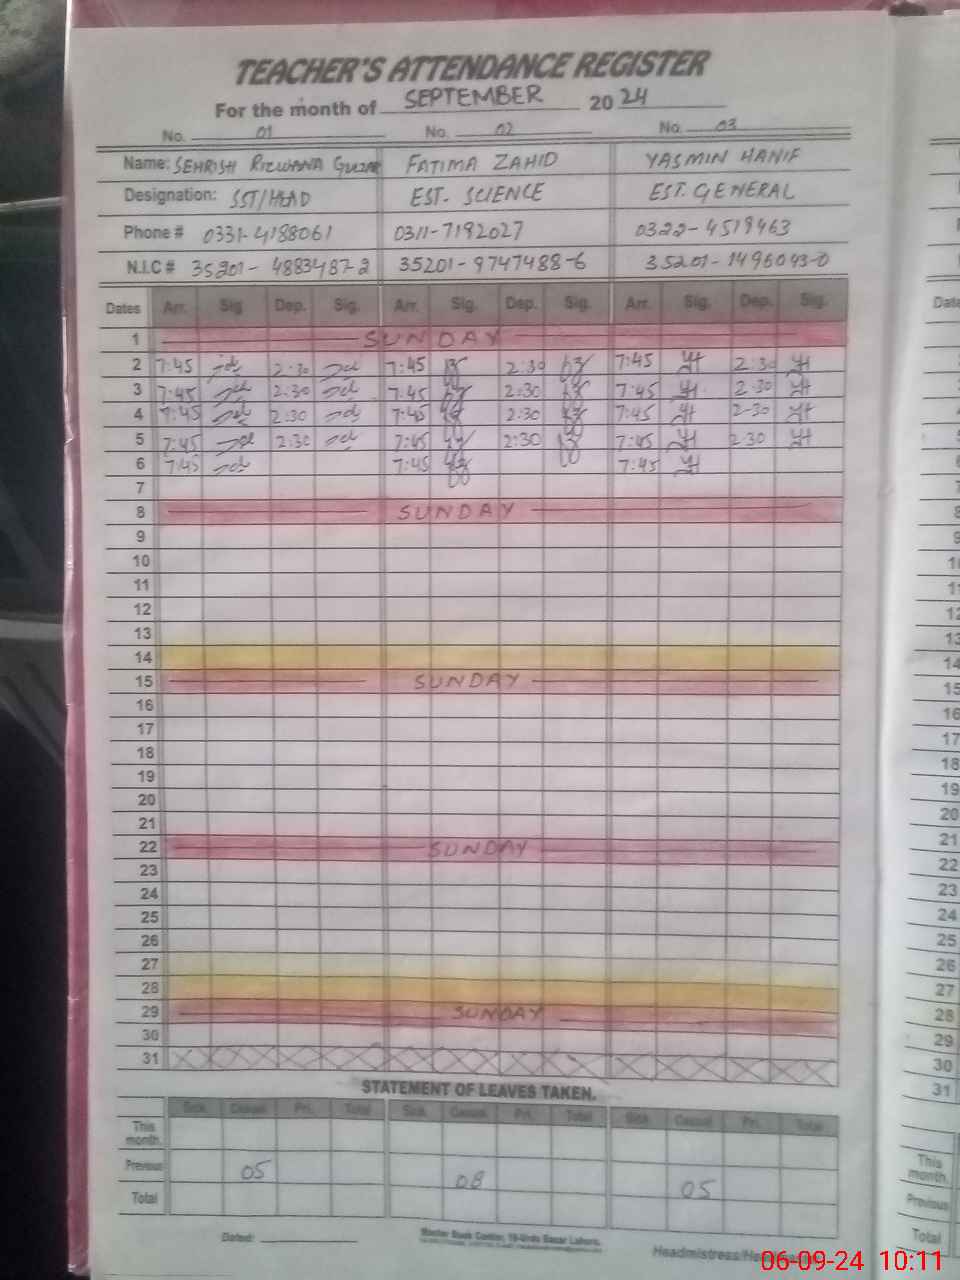 TEACHER'S ATTENDANCE REGISTER
For the month of SEPTEMBER 2024
No. 01 No. 02 No. 03
Name: SEHRISH RIZWANA GULZAR FATIMA ZAHID YASMIN HANIF
Designation: SST/HEAD EST. SCIENCE EST. GENERAL
Phone # 0331-4188061 0311-7192027 0322-4519463
N.I.C # 35201-4883487-2 35201-9747488-6 35201-1496093-0
Dates Arr. Sig. Dep. Sig. Arr. Sig. Dep. Sig. Arr. Sig. Dep. Sig.
1 SUNDAY
2 7:45 2:30 7:45 2:30 7:45 2:30
3 7:45 2:30 7:45 2:30 7:45 2-30
4 7:45 2:30 7:45 2:30 7:45 2-30
5 7:45 2:30 7:45 2:30 7:45 2:30
6 7:45 7:45 7:45
7
8 SUNDAY
9
10
11
12
13
14
15 SUNDAY
16
17
18
19
20
21
22 SUNDAY
23
24
25
26
27
28
29 SUNDAY
30
31
STATEMENT OF LEAVES TAKEN.
Sick. Casual Pri. Total Sick. Casual Pri. Total Sick. Casual Pri. Total
This month.
Previous 05 08 05
Total
Dated:
Master Book Center, 19-Urdu Bazar Lahore.
Headmistress/
06-09-24 10:11